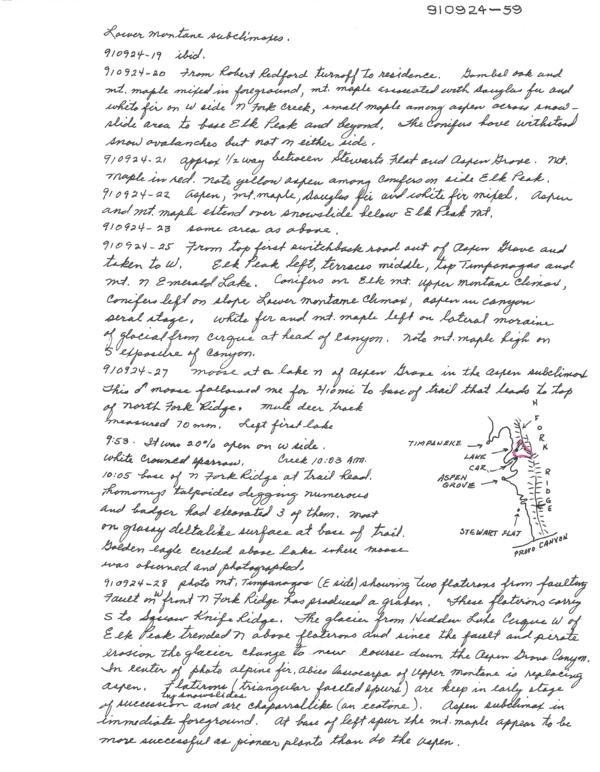 910924-59
Lower montane subclimaxes.
910924-19 ibid.
910924-20 From Robert Redford turnoff to residence. Gambel oak and
mt. maple mixed in foreground, mt. maple associated with douglas fir and
white fir on W side N Fork Creek, small maple among aspen across snow-
slide area to base Elk Peak and beyond. The conifers have withstood
snow avalanches but not on either side.
910924-21 approx 1/2 way between Stewarts Flat and Aspen Grove. Mt.
maple in red. Note yellow aspen among conifers on side Elk Peak.
910924-22 Aspen, mt. maple, douglas fir and white fir mixed. Aspen
and mt. maple extend over snowslide below Elk Peak Mt.
910924-23 same area as above.
910924-25 From top first switchback road out of Aspen Grove and
taken to W. Elk Peak left, terraces middle, top Timpanogas and
mt. N Emerald Lake. Conifers on Elk mt. Upper montane Climax,
Conifers left on slope Lower montane Climax, aspen in canyon
seral stage. White fir and mt. maple left on lateral moraine
of glacial from cirque at head of canyon. Note mt. maple high on
S exposure of Canyon.
910924-27 moose at a lake N of Aspen Grove in the aspen subclimax
This ♂ moose followed me for 4/10 mi to base of trail that leads to top
of North Fork Ridge. Mule deer track
measured 70 mm. Left first lake
9:53. It was 20% open on W side.
White Crowned Sparrow. Creek 10:03 AM.
10:05 base of N Fork Ridge at trail head.
Thomomys talpoides digging numerous
and badger had excavated 3 of them. Most
on grassy deltalike surface at base of trail.
Golden eagle circled above lake where moose
was observed and photographed.
N FORK RIDGE
TIMPANEKE
LAKE
CAR
ASPEN GROVE
STEWART FLAT
PROVO CANYON
910924-28 photo Mt. Timpanogos (E side) showing two flatirons from faulting
Fault on W front N Fork Ridge has produced a graben. These flatirons carry
S to Squaw Knife Ridge. The glacier from Hidden Lake Cirque W of
Elk Peak trended N above flatirons and since the fault and pirate
erosion the glacier change to new course down the Aspen Grove Canyon.
In center of photo alpine fir, Abies lasiocarpa of Upper montane is replacing
aspen. Flatirons (triangular faceted spurs) are keep in early stage
by snowslides
of succession and are chaparrallike (an ecotone). Aspen subclimax in
immediate foreground. At base of left spur the mt. maple appear to be
more successful as pioneer plants than do the aspen.